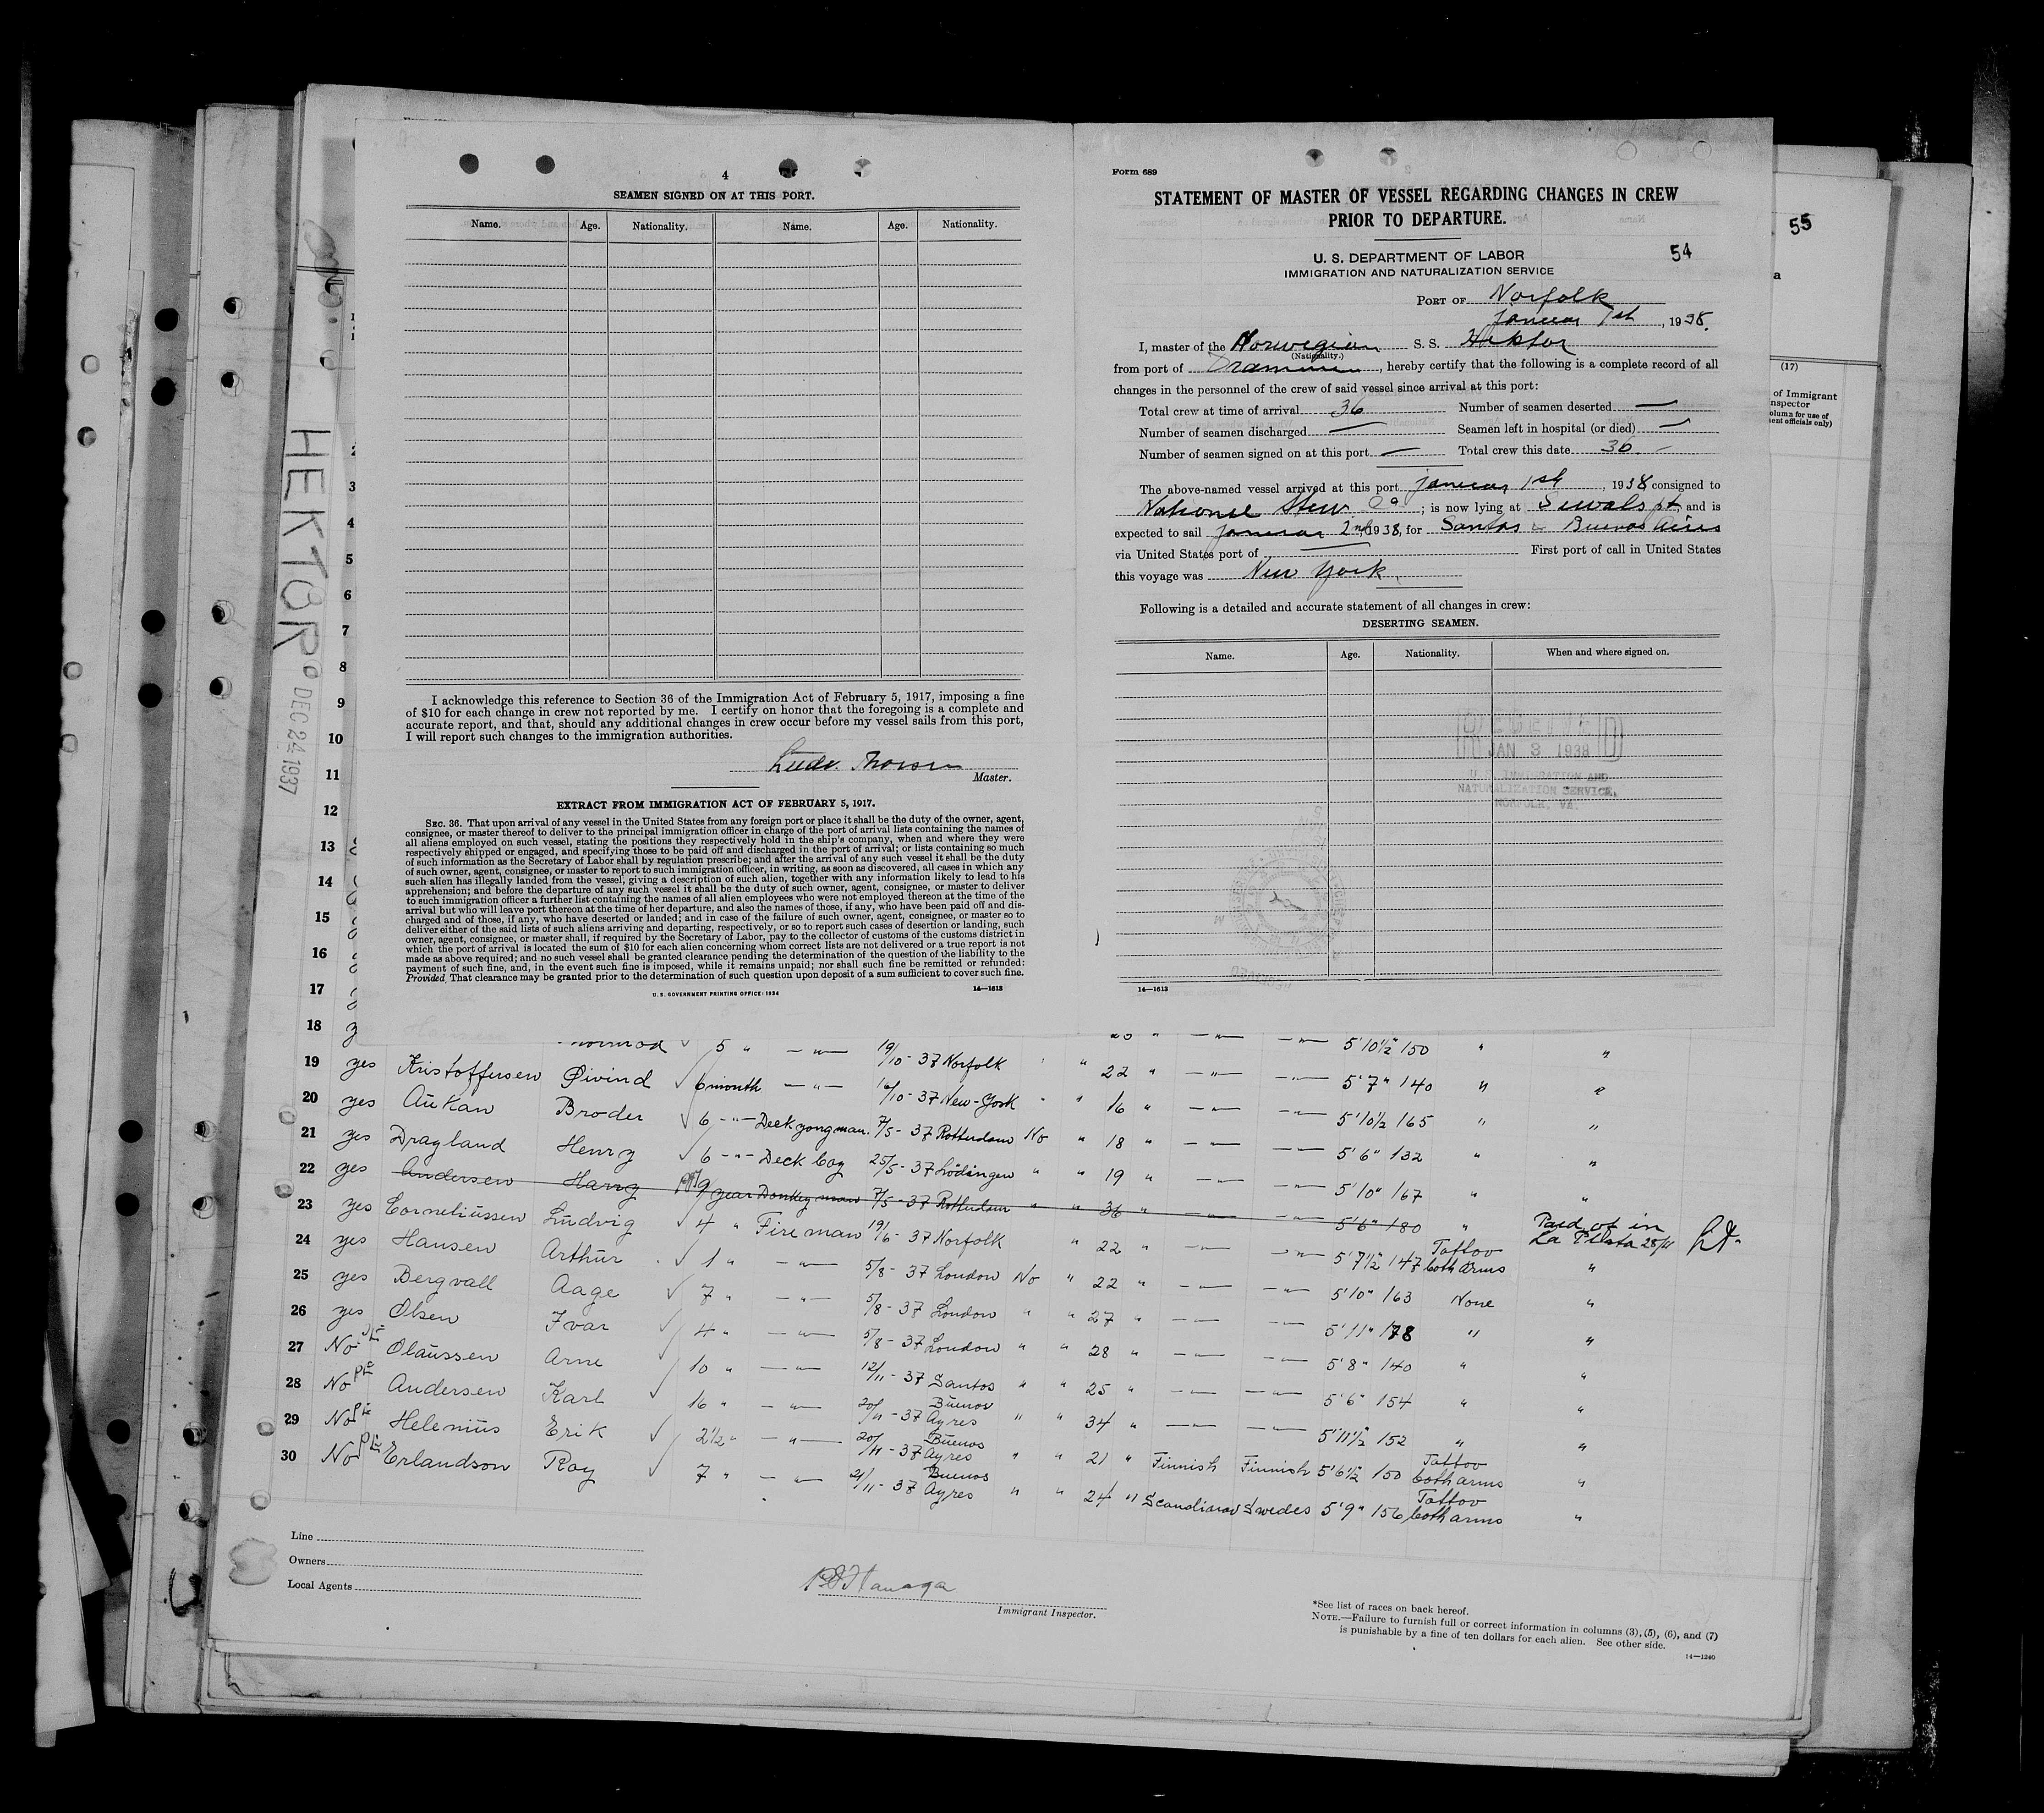 4
SEAMEN SIGNED ON AT THIS PORT.
Name. Age. Nationality. Name. Age. Nationality.
I acknowledge this reference to Section 36 of the Immigration Act of February 5, 1917, imposing a fine
of $10 for each change in crew not reported by me. I certify on honor that the foregoing is a complete and
accurate report, and that, should any additional changes in crew occur before my vessel sails from this port,
I will report such changes to the immigration authorities.
Master.
EXTRACT FROM IMMIGRATION ACT OF FEBRUARY 5, 1917.
SEC. 36. That upon arrival of any vessel in the United States from any foreign port or place it shall be the duty of the owner, agent,
consignee, or master thereof to deliver to the principal immigration officer in charge of the port of arrival lists containing the names of
all aliens employed on such vessel, stating the positions they respectively hold in the ship's company, when and where they were
respectively shipped or engaged, and specifying those to be paid off and discharged in the port of arrival; or lists containing so much
of such information as the Secretary of Labor shall by regulation prescribe; and after the arrival of any such vessel it shall be the duty
of such owner, agent, consignee, or master to report to such immigration officer, in writing, as soon as discovered, all cases in which any
such alien has illegally landed from the vessel, giving a description of such alien, together with any information likely to lead to his
apprehension; and before the departure of any such vessel it shall be the duty of such owner, agent, consignee, or master to deliver
to such immigration officer a further list containing the names of all alien employees who were not employed thereon at the time of the
arrival but who will leave port thereon at the time of her departure, and also the names of those, if any, who have been paid off and dis-
charged and of those, if any, who have deserted or landed; and in case of the failure of such owner, agent, consignee, or master so to
deliver either of the said lists of such aliens arriving and departing, respectively, or so to report such cases of desertion or landing, such
owner, agent, consignee, or master shall, if required by the Secretary of Labor, pay to the collector of customs of the customs district in
which the port of arrival is located the sum of $10 for each alien concerning whom correct lists are not delivered or a true report is not
made as above required; and no such vessel shall be granted clearance pending the determination of the question of the liability to the
payment of such fine, and, in the event such fine is imposed, while it remains unpaid; nor shall such fine be remitted or refunded:
Provided, That clearance may be granted prior to the determination of such question upon deposit of a sum sufficient to cover such fine.
U. S. GOVERNMENT PRINTING OFFICE: 1934 14—1613
Form 689
STATEMENT OF MASTER OF VESSEL REGARDING CHANGES IN CREW
PRIOR TO DEPARTURE.
U. S. DEPARTMENT OF LABOR
IMMIGRATION AND NATURALIZATION SERVICE
54
PORT OF Norfolk
Januar 1st, 1938.
I, master of the Norwegian S. S. Hektor
(Nationality.)
from port of Drammen, hereby certify that the following is a complete record of all
changes in the personnel of the crew of said vessel since arrival at this port:
Total crew at time of arrival 36 Number of seamen deserted —
Number of seamen discharged — Seamen left in hospital (or died) —
Number of seamen signed on at this port — Total crew this date 36
The above-named vessel arrived at this port Januar 1st, 1938 consigned to
National Stew. Co; is now lying at Sewals pt and is
expected to sail Januar 2nd, 1938, for Santos & Buenos Aires
via United States port of — First port of call in United States
this voyage was New York.
Following is a detailed and accurate statement of all changes in crew:
DESERTING SEAMEN.
Name. Age. Nationality. When and where signed on.
RECEIVED
JAN 3 1938
U. S. IMMIGRATION AND
NATURALIZATION SERVICE,
NORFOLK, VA.
14—1613
55
a
(17)
of Immigrant
nspector
olumn for use of
ent officials only)
HEKTOR
DEC 24 1937
3
4
5
6
7
8
9
10
11
12
13
14
15
16
17
18 5 " — " — 19/10 - 37 Norfolk 5'10½" 150 " "
19 yes Kristoffersen Øivind 6 month — " — 16/10 - 37 New-York " " 22 " — " — — " — 5'7" 140 " "
20 yes Aukan Broder 6 — " — Deck yongman. 7/5 - 37 Rotterdam No " 16 " — " — — " — 5'10½ 165 " "
21 yes Dragland Henry 6 — " — Deck boy 25/5 - 37 Lödingen " " 18 " — " — — " — 5'6" 132 " "
22 yes Andersen Harry 9 year Donkey man 7/5 - 37 Rotterdam " " 19 " — " — — " — 5'10" 167 " "
23 yes Corneliussen Ludvig 4 " Fireman 19/6 - 37 Norfolk " 36 " — " — — " — 5'6" 180 " Paid of in La Plata 28/11
24 yes Hansen Arthur 1 " — " — 5/8 - 37 London No " 22 " — " — — " — 5'7½" 147 Tattov both arms "
25 yes Bergvall Aage 7 " — " — 5/8 - 37 London " " 22 " — " — — " — 5'10" 163 None "
26 yes Olsen Ivar 4 " — " — 5/8 - 37 London " " 27 " — " — — " — 5'11" 178 " "
27 No Olaussen Arne 10 " — " — 12/11 - 37 Santos " " 28 " — " — — " — 5'8" 140 " "
28 No Andersen Karl 16 " — " — 20/11 - 37 Buenos Ayres " " 25 " — " — — " — 5'6" 154 " "
29 No Helenius Erik 2½ " — " — 20/11 - 37 Buenos Ayres " " 34 " — " — — " — 5'11½ 152 " "
30 No Erlandson Roy 7 " — " — 21/11 - 37 Buenos Ayres " " 21 " Finnish Finnish 5'6½" 150 Tattov both arms "
24 " Scandinav Swedes 5'9" 156 Tattov both arms "
Line
Owners
Local Agents
Immigrant Inspector.
*See list of races on back hereof.
NOTE.—Failure to furnish full or correct information in columns (3), (5), (6), and (7)
is punishable by a fine of ten dollars for each alien. See other side.
14—1240